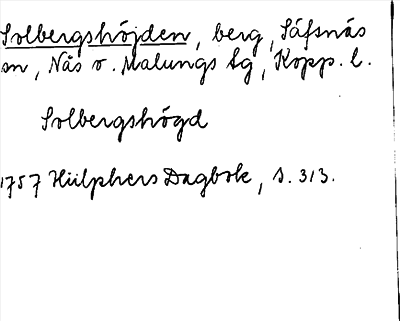 Solbergshöjden, berg, Säfsnäs
sn, Näs o. Malungs tg, Kopp. l.
Solbergshögd
1757 Hülphers Dagbok, s. 313.